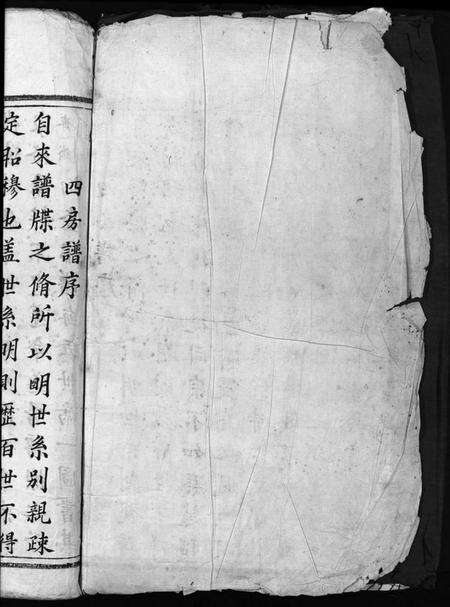 四房譜序
自來譜牒之脩所以明世系別親疎
定昭穆也蓋世系明則歷百世不得